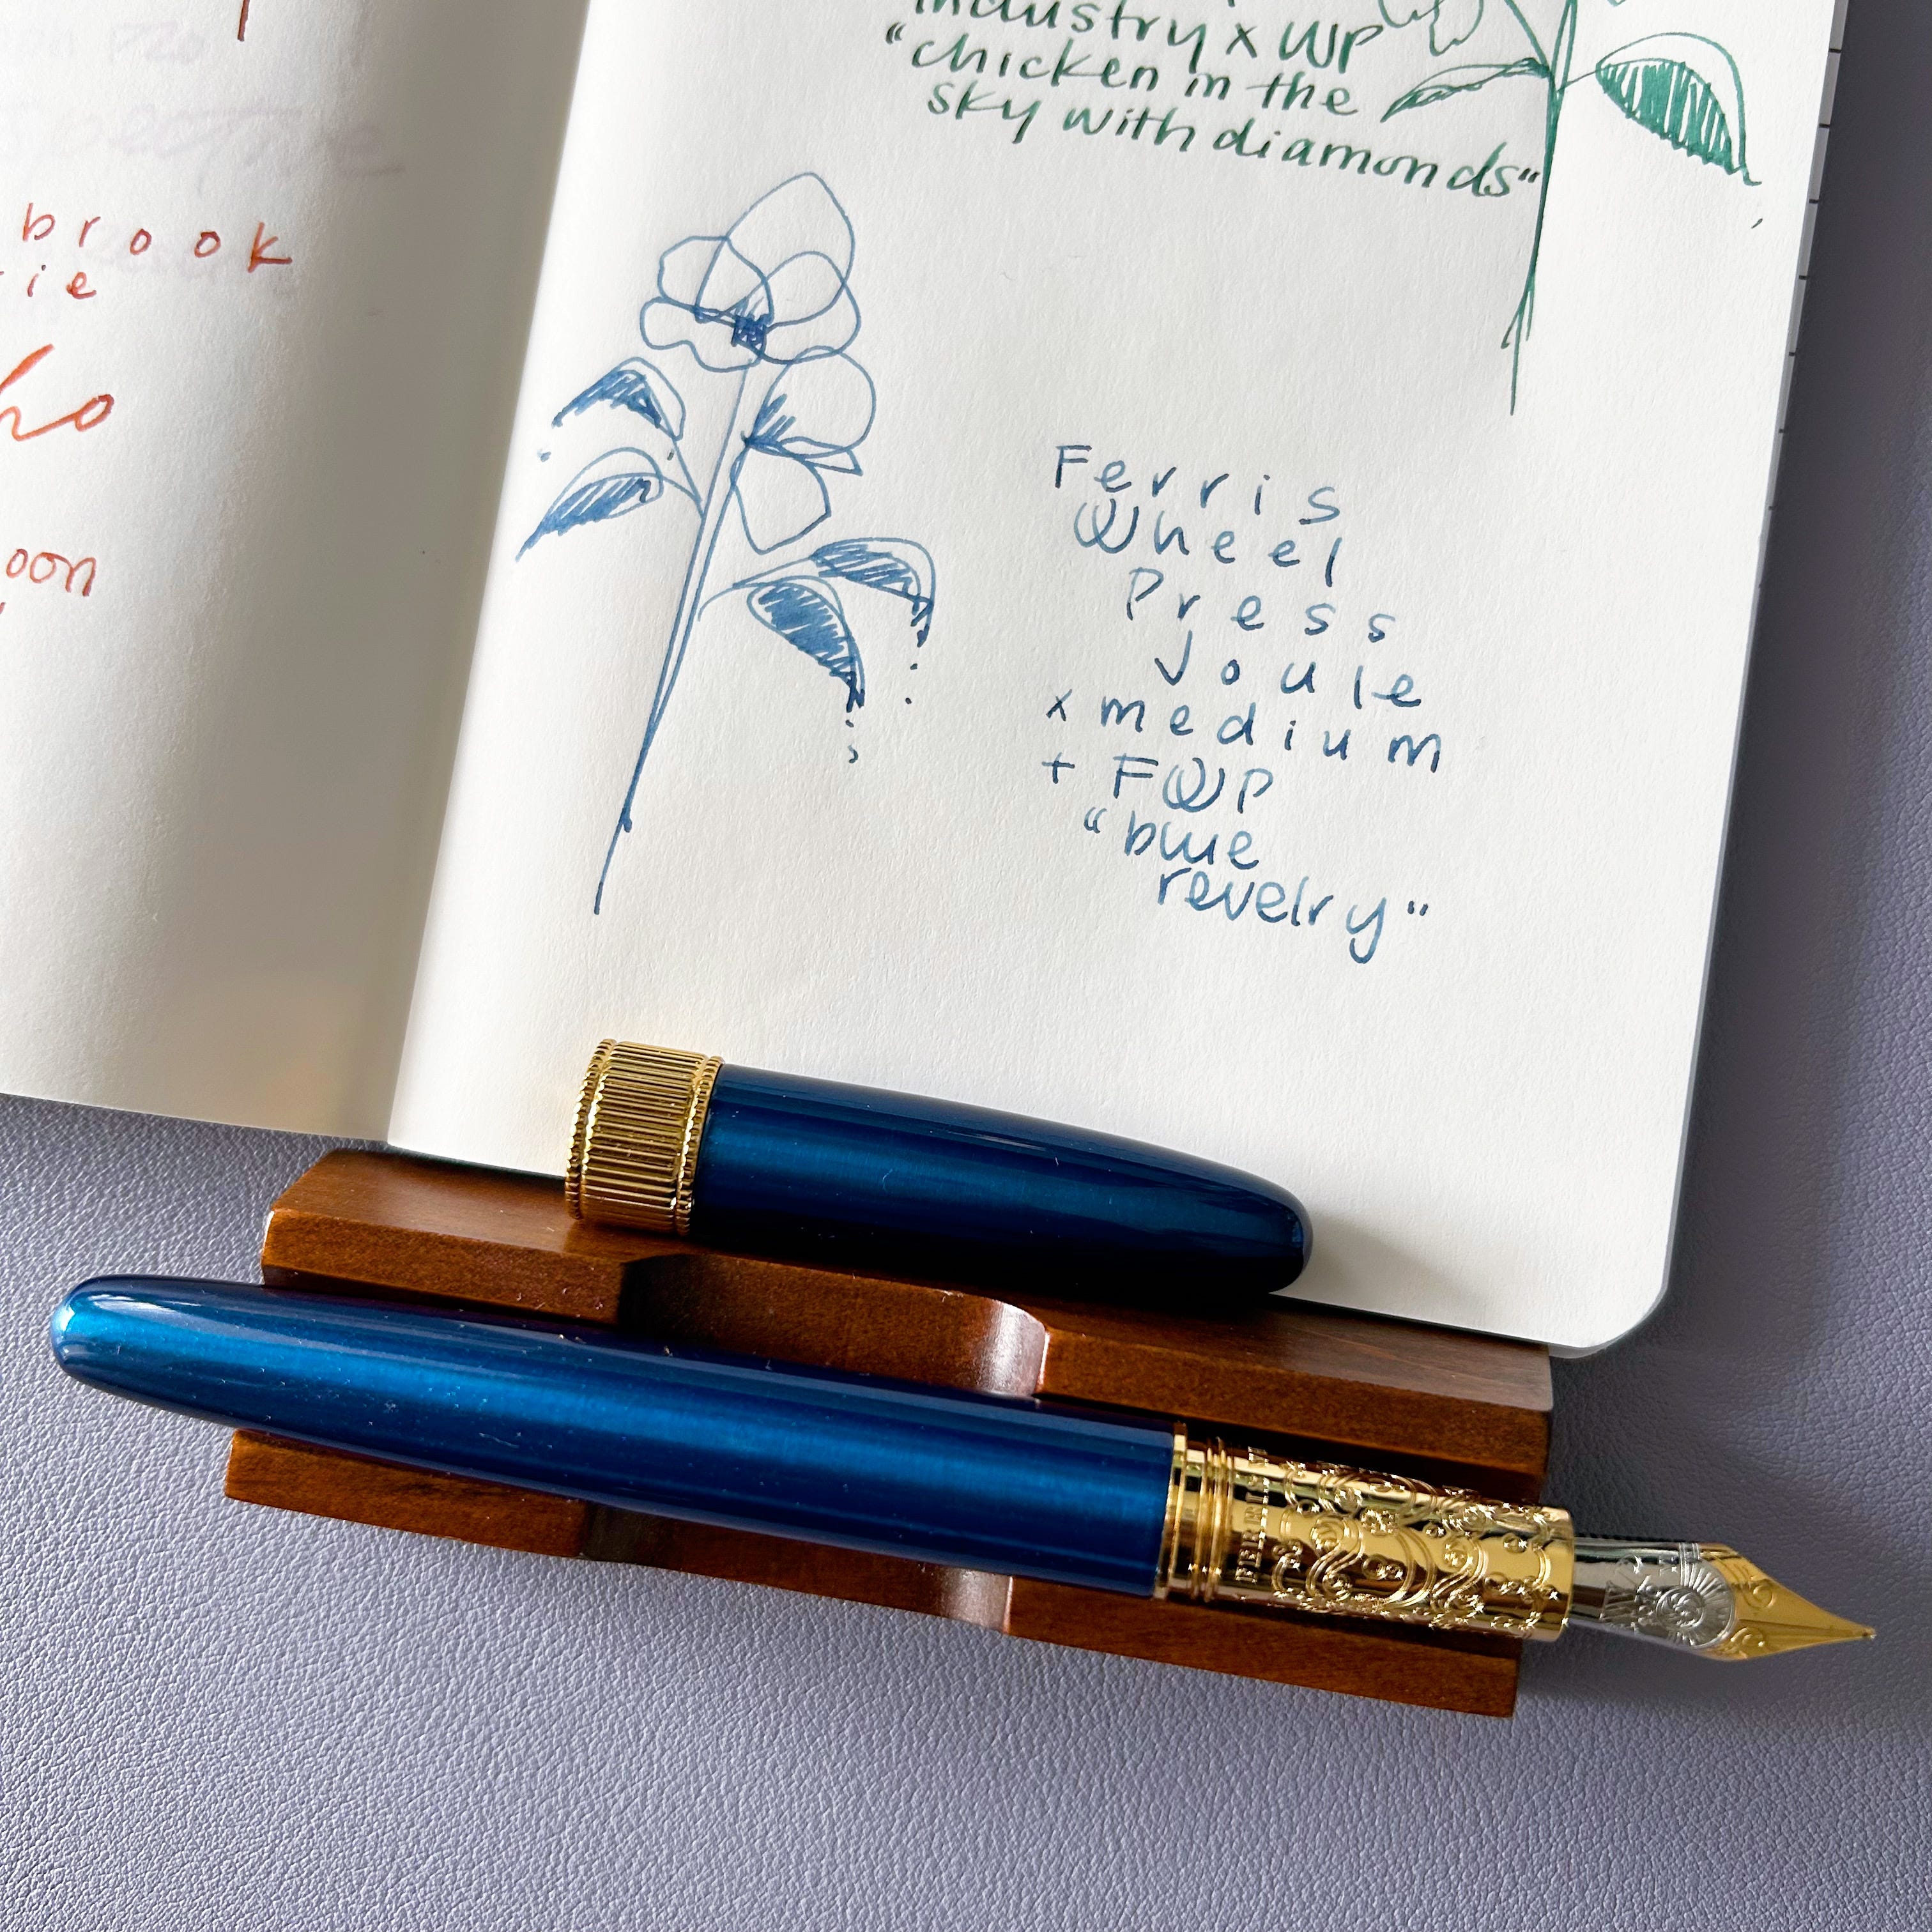 brook
ho
oon
industry x WP
"chicken in the
sky with diamonds"
Ferris
Wheel
Press
Joule
x medium
+ FWP
"blue
revelry"
FERRIS